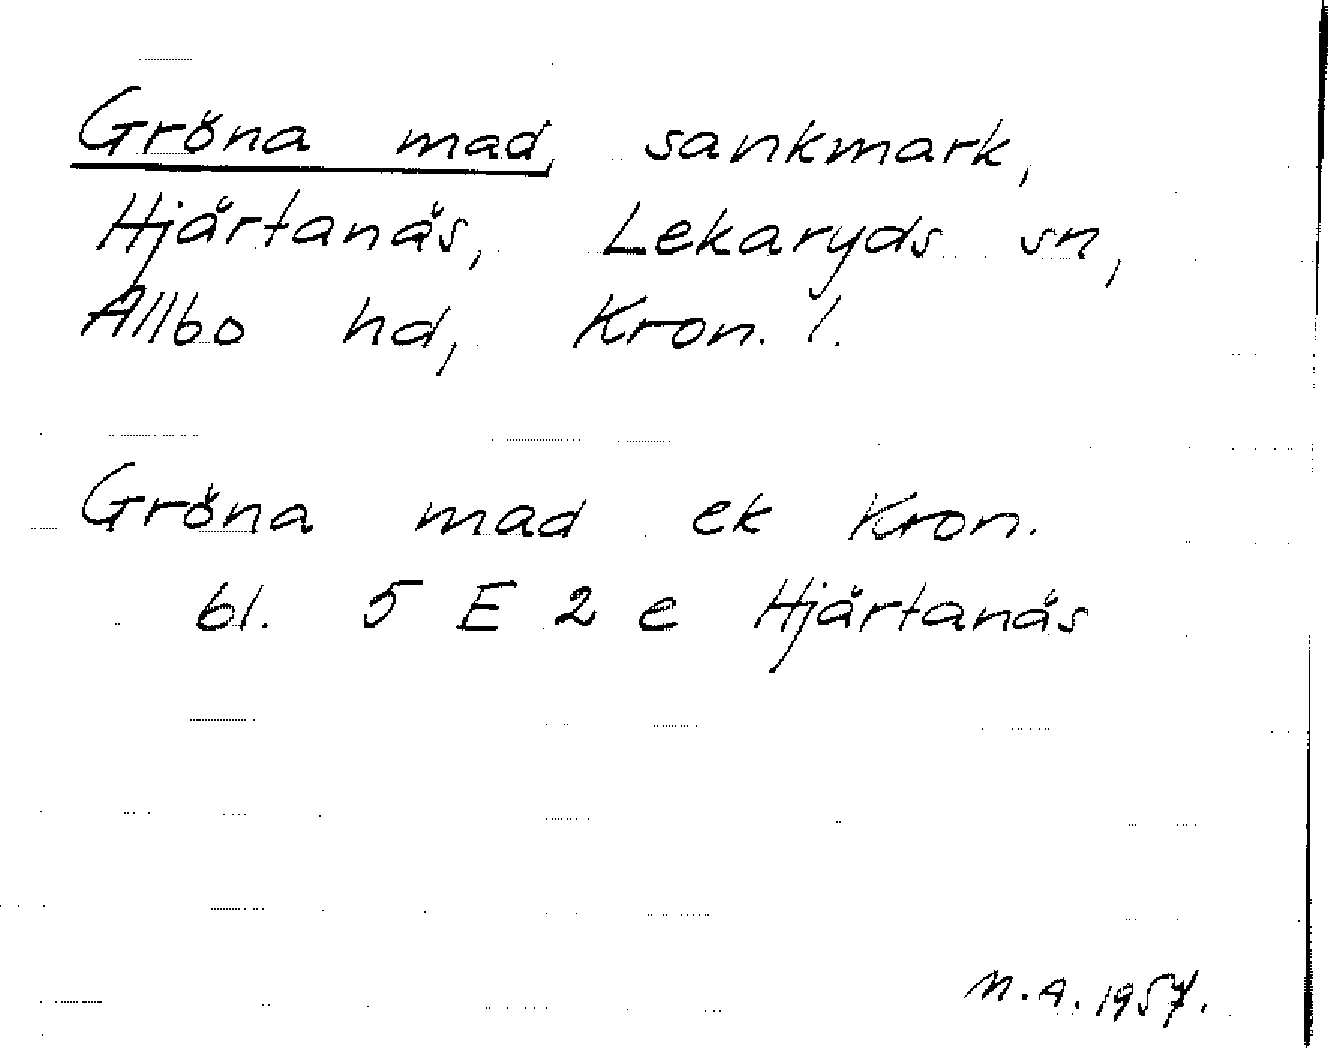 Gröna mad, sankmark,
Hjärtanäs, Lekaryds sn,
Allbo hd, Kron. l.
Gröna mad ek Kron.
bl. 5 E 2 e Hjärtanäs
M.A. 1957.